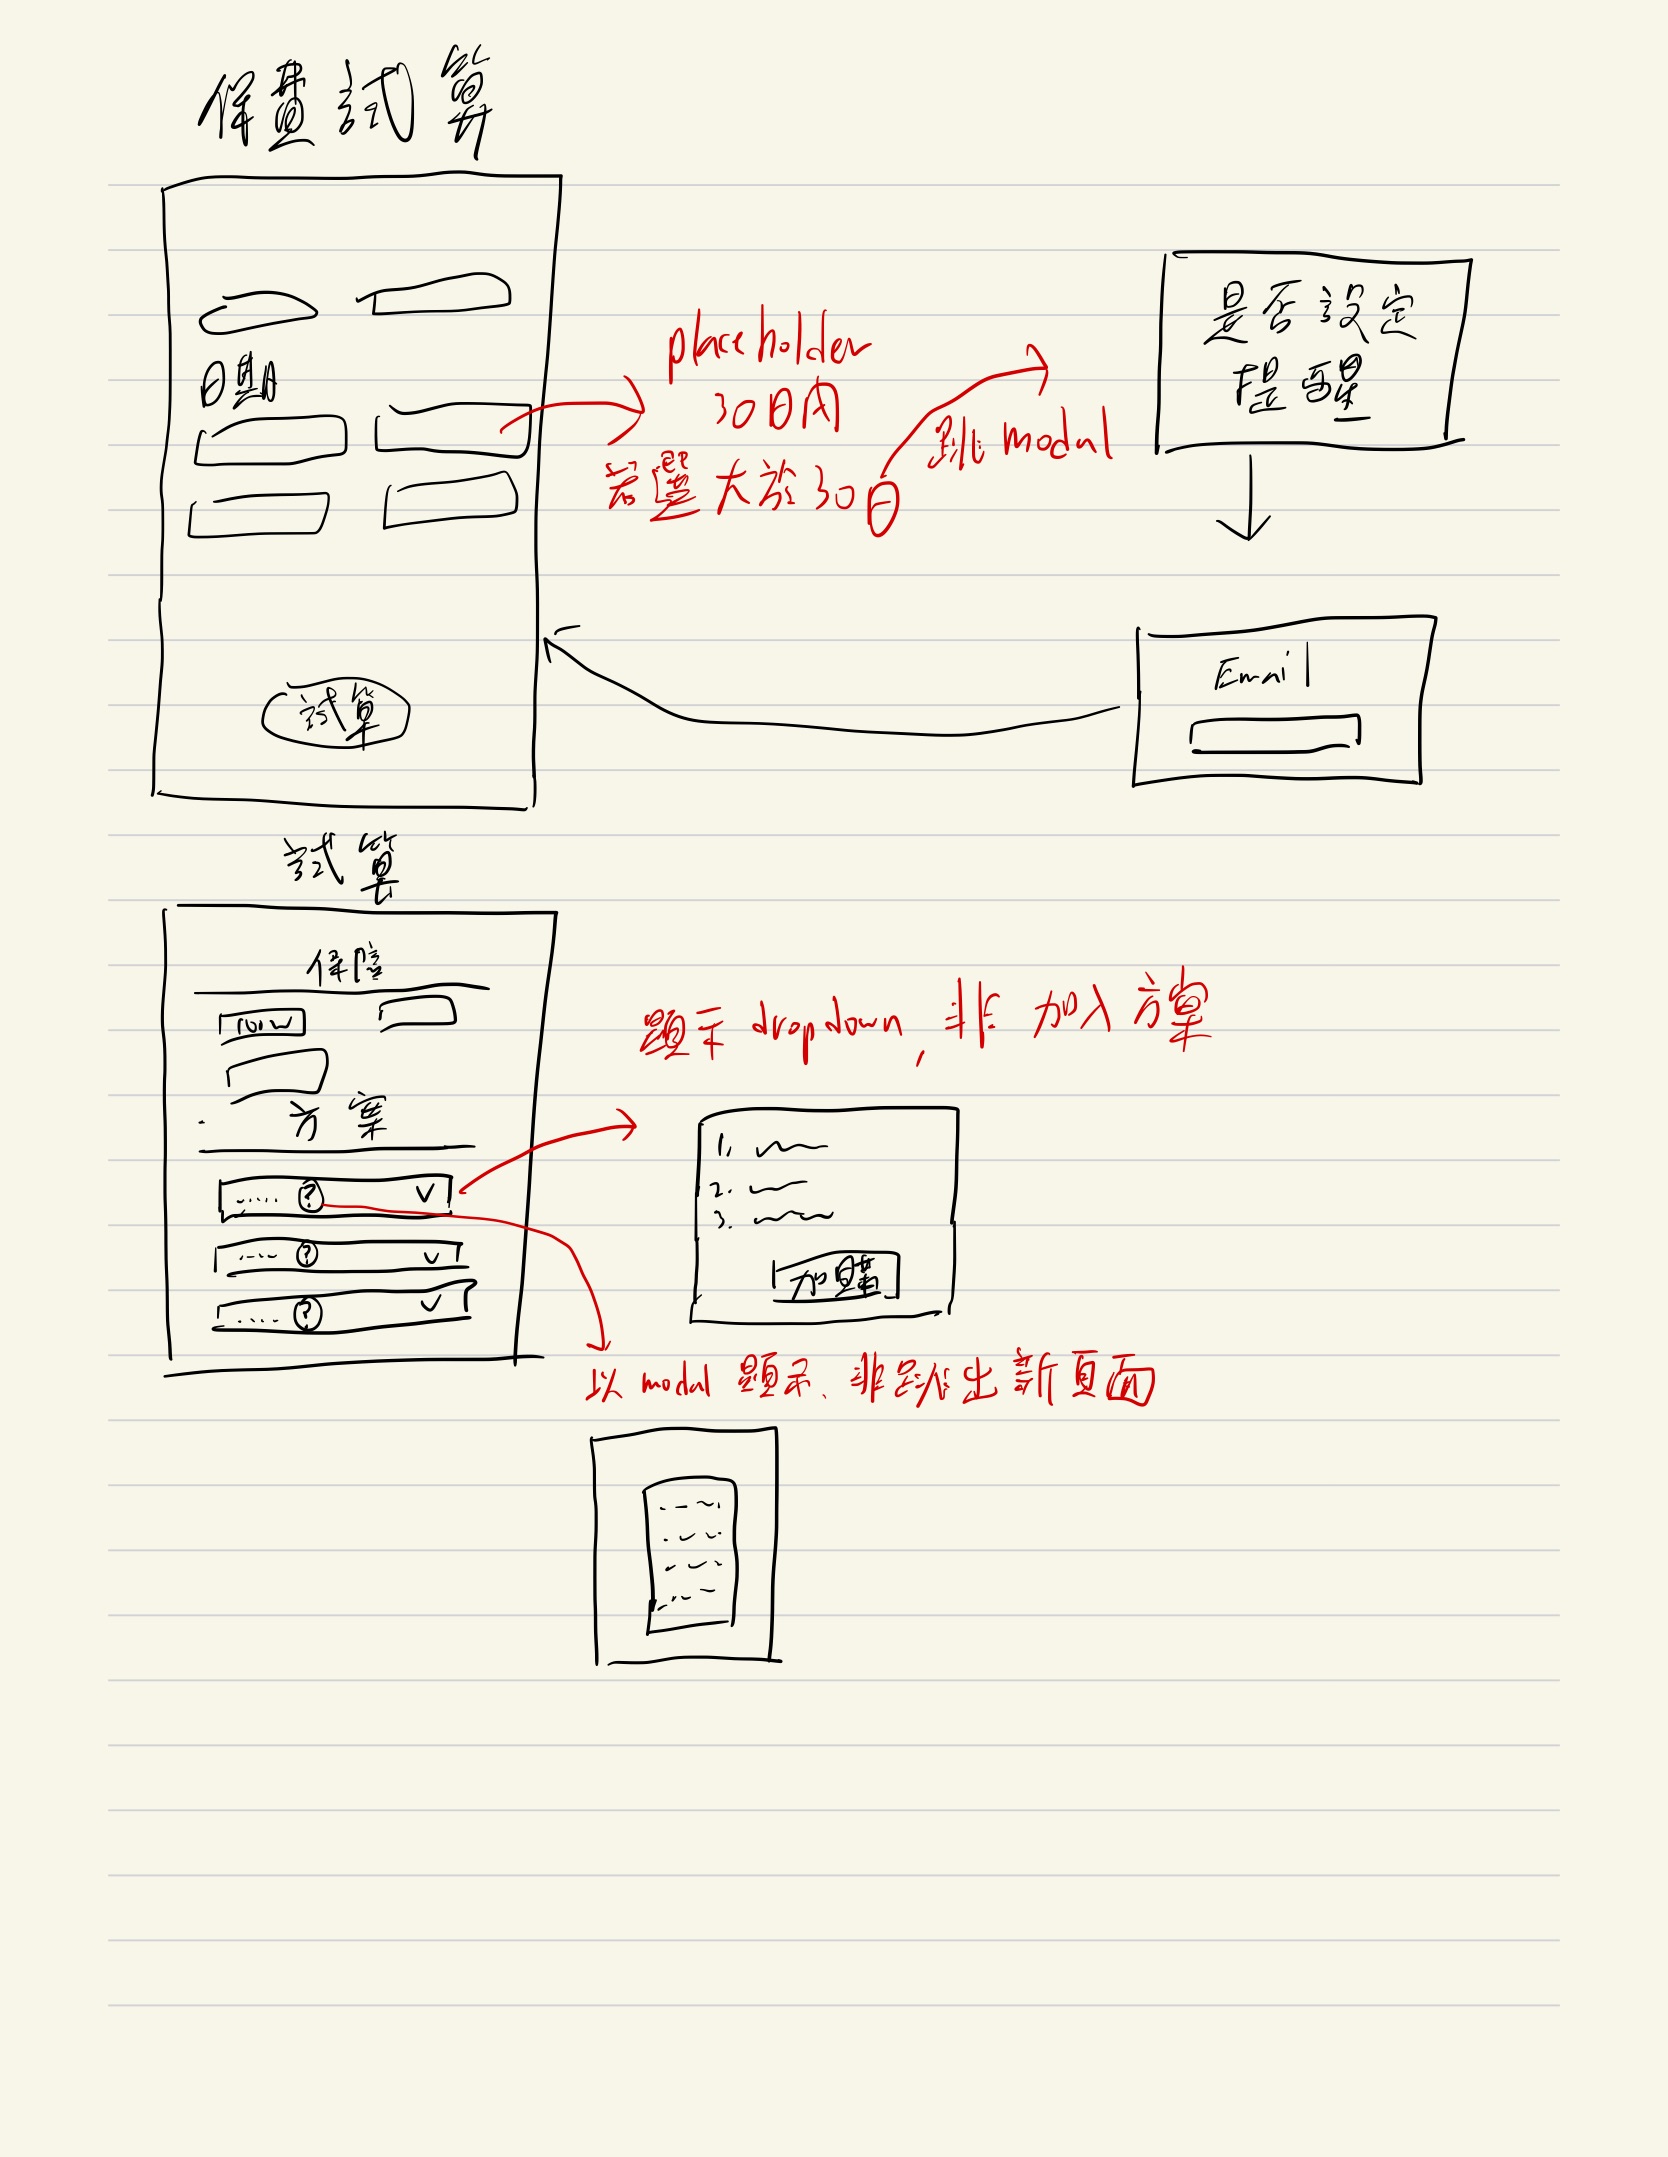 保費試算
日期
placeholder
30日內
若選大於30日
跳 modal
是否設定
提醒
Email
試算
試算
保障
100w
方案
? ∨
? ∨
? ∨
顯示 dropdown, 非 加入方案
1.
2.
3.
加購
以 modal 顯示、非跳出新頁面